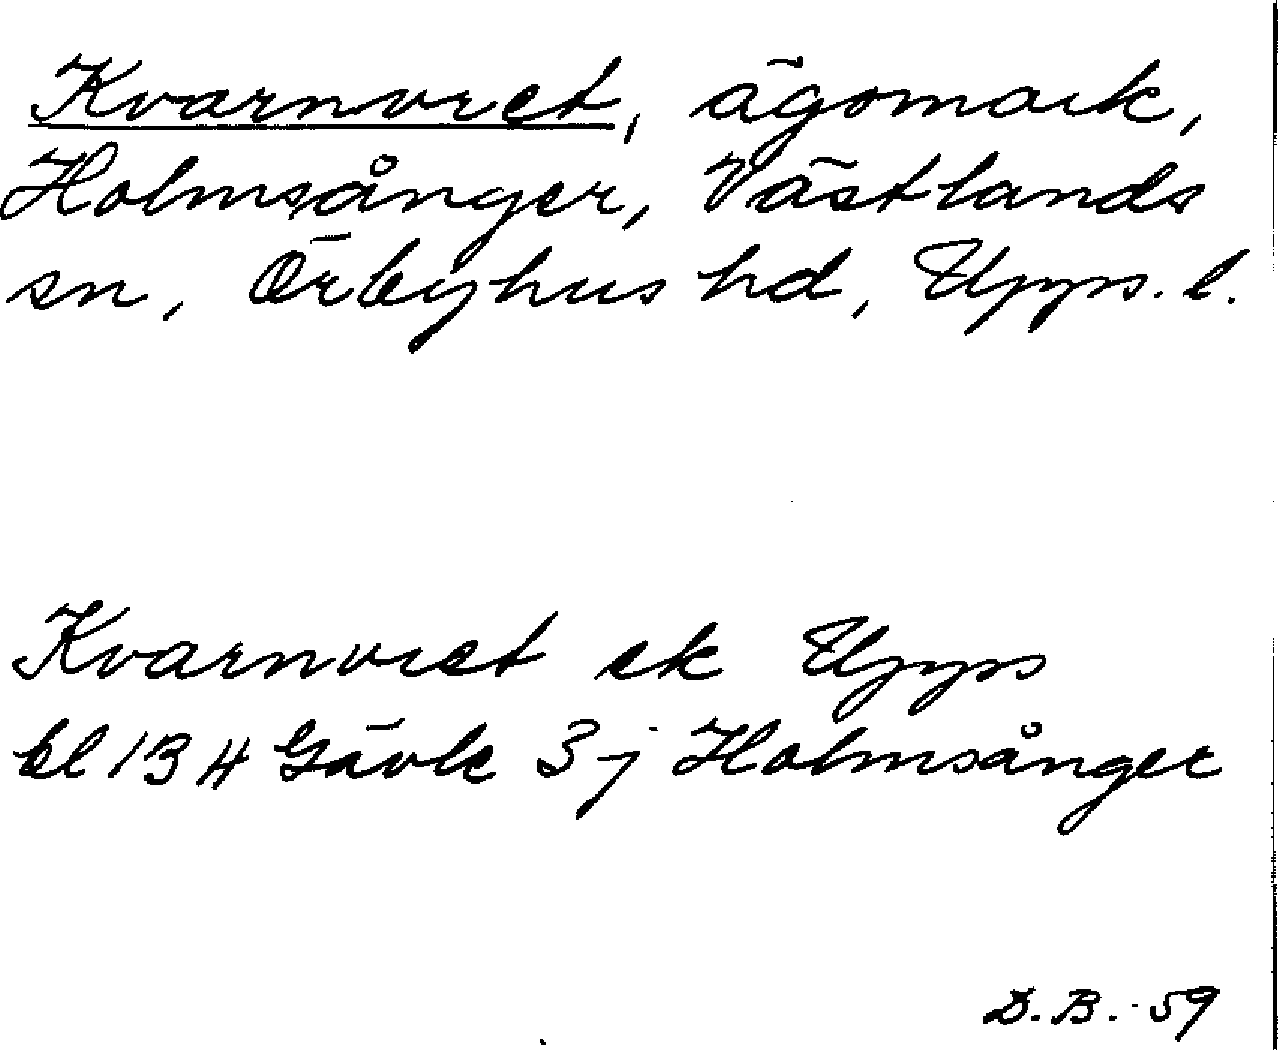 Kvarnvret, ägomark,
Holmsånger, Västlands
sn, Örbyhus hd, Upps. l.
Kvarnvret ek Upps
bl 13 H Gävle 3 j Holmsånger
D.B. -59